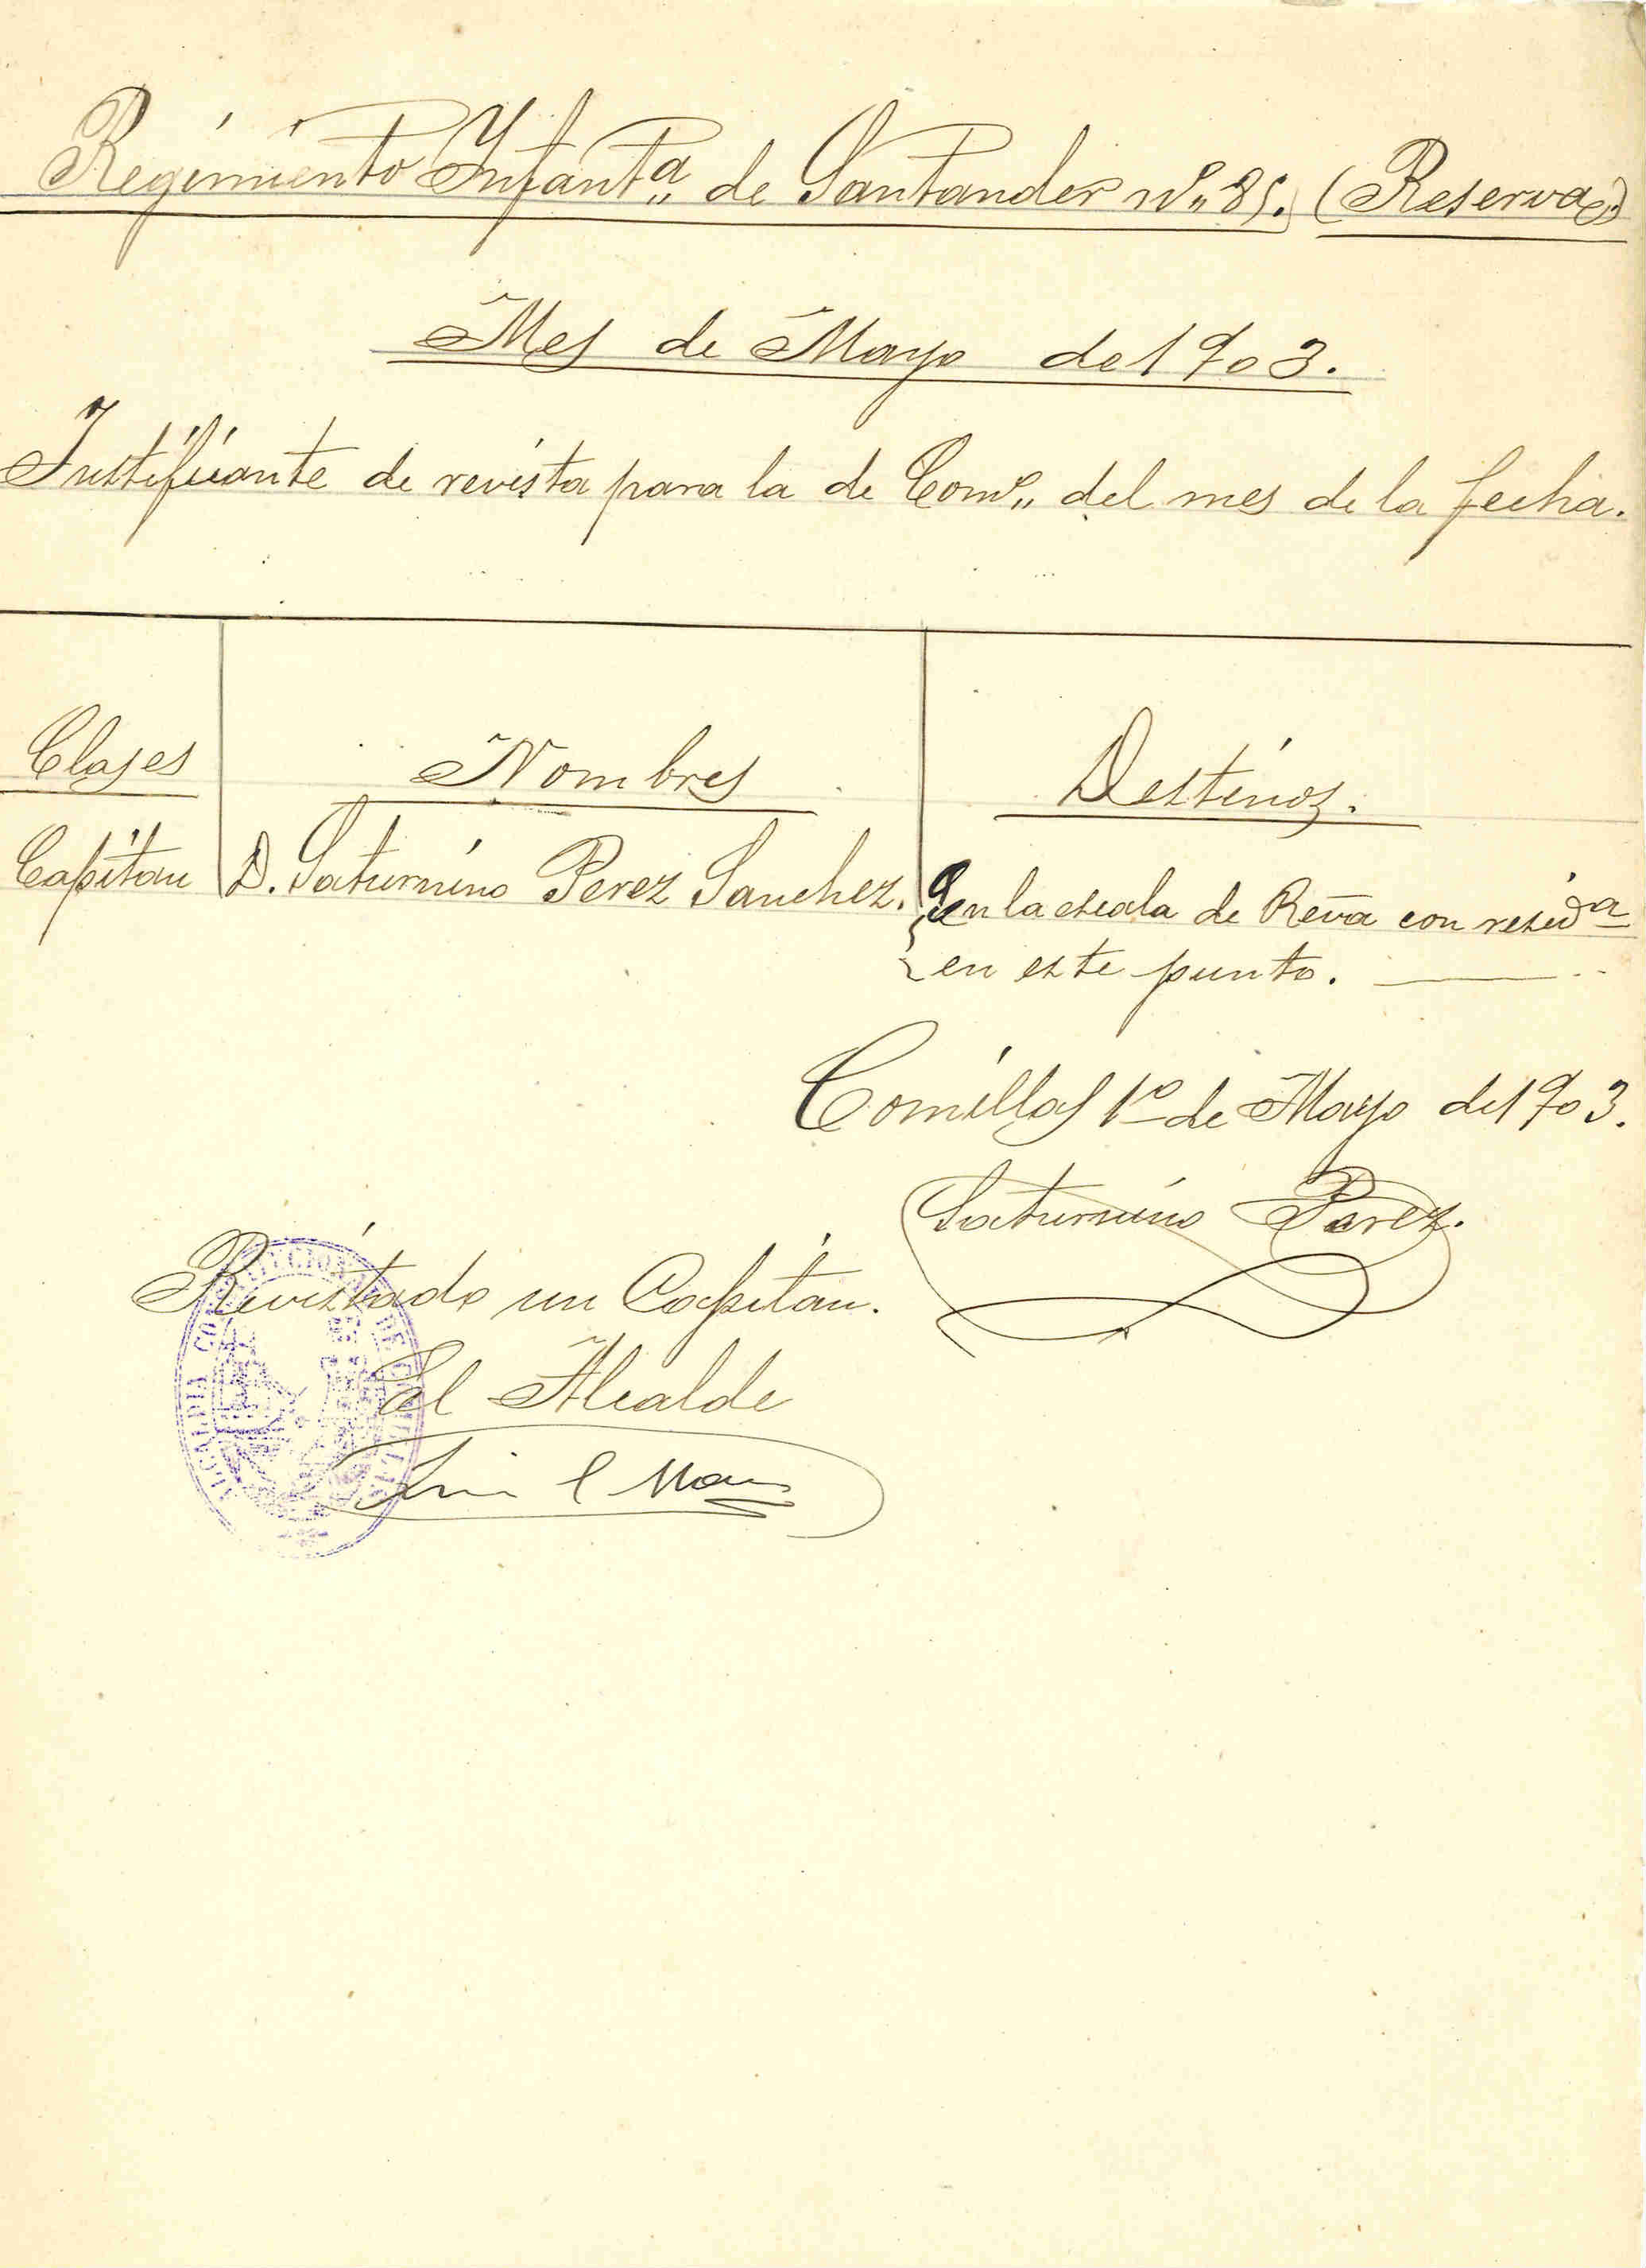 Regimiento Ynfantª de Santander nº 85. (Reserva)
Mes de Mayo de 1903.
Justificante de revista para la de Comº del mes de la fecha.
Clases Nombres Destinos.
Capitan D. Saturnino Perez Sanchez. En la escala de Rēva con residª
en este punto.
Comillas 1º de Mayo de 1903.
Saturnino Perez.
Revistado un Capitan.
El Alcalde
ALCALDIA CONSTITUCIONAL DE COMILLAS